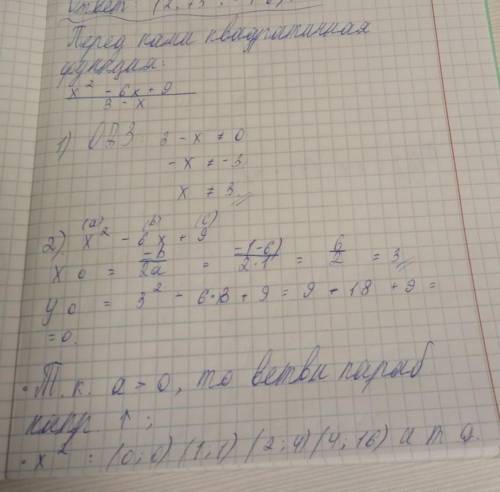 Ответ
Перед нами квадратичная
функция:
x² - 6x + 9
3 - x
1) ОДЗ 3 - x ≠ 0
-x ≠ -3
x ≠ 3
(a) (b) (c)
2) x² - 6x + 9
x0 = -b/2a = -(-6)/2·1 = 6/2 = 3
y0 = 3² - 6·3 + 9 = 9 - 18 + 9 =
= 0.
· Т.к. a > 0, то ветви параб
напр. ↑ ;
· x² : (0; 0) (1; 1) (2; 4) (4; 16) и т д.